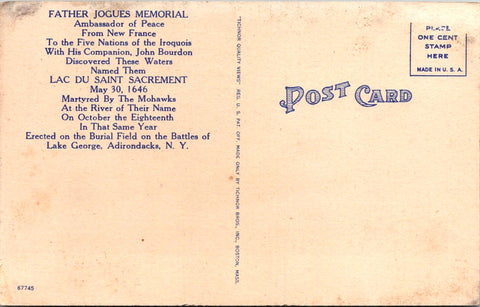 FATHER JOGUES MEMORIAL
Ambassador of Peace
From New France
To the Five Nations of the Iroquois
With His Companion, John Bourdon
Discovered These Waters
Named Them
LAC DU SAINT SACREMENT
May 30, 1646
Martyred By The Mohawks
At the River of Their Name
On October the Eighteenth
In That Same Year
Erected on the Burial Field on the Battles of
Lake George, Adirondacks, N. Y.
67745
"TICHNOR QUALITY VIEWS" REG. U. S. PAT. OFF. MADE ONLY BY TICHNOR BROS., INC., BOSTON, MASS.
POST CARD
PLACE
ONE CENT
STAMP
HERE
MADE IN U. S. A.